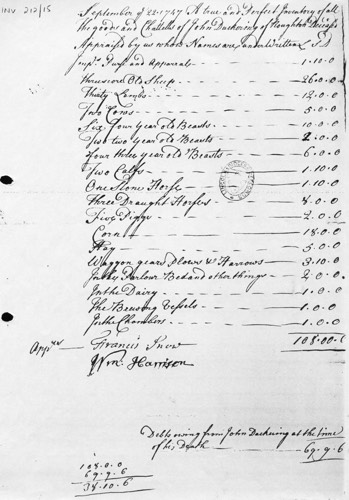 INV 212/15
September ye 22 1747 A true and Perfect Inventory of all
the goods and Chattells of John Duckering of
Appraised by us whose Names are underwritten L S D
Purs and Apparrale - - - 1.10.0
threescore Old Sheep - - - 26.0.0
Thirty Lambs - - - 12.0.0
Two Cows - - - 5.0.0
Six four year old Beasts - - - 10.0.0
Two two year old Beasts - - - 2.0.0
four three year old Beasts - - - 6.0.0
Two Calfs - - - 1.10.0
One Stone Horse - - - 1.10.0
Three Draught Horses - - - 8.0.0
Five Piggs - - - 2.0.0
Corn - - - 18.0.0
Hay - - - 5.0.0
Waggon gears Plows & Harrows - - - 3.10.0
In the Parlour Bed and other things - 2.0.0
In the Dairy - - - 1.0.0
The Brewing Vessels - - - 1.0.0
In the Chambers - - - 1.0.0
108.00.6
Francis Snow
Wm. Harrison
Debts owing from John Duckering at the time
of his Death - - - 69.9.6
108.0.0
69.9.6
38.10.6